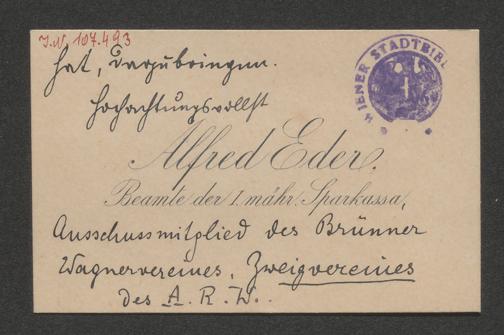 I.N. 107.493
WIENER STADTBIBL
hat, darzubringen.
Hochachtungsvollst
Alfred Eder,
Beamte der I. mähr. Sparkassa,
Ausschussmitglied des Brünner
Wagnervereines, Zweigvereines
des A. R. W..